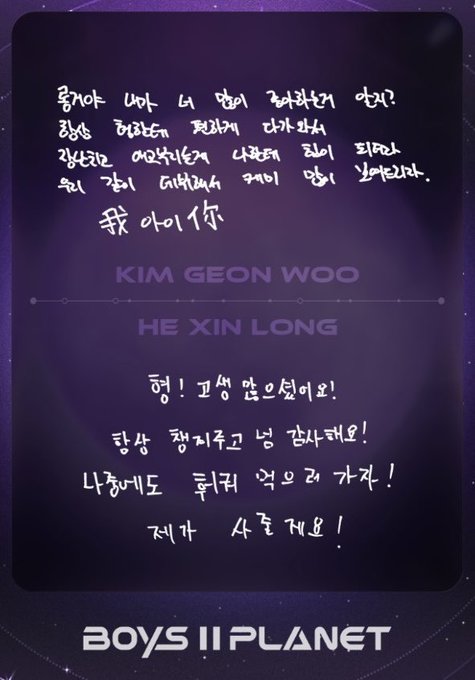 롱거야 내가 너 많이 좋아하는거 알지?
항상 형한테 편하게 다가와서
장난치고 애교부리는게 나한테 힘이 되더라
우리 같이 데뷔해서 케미 많이 보여드리자.
我 아이 你
KIM GEON WOO
HE XIN LONG
형! 고생 많으셨어요!
항상 챙겨주고 넘 감사해요!
나중에도 훠궈 먹으러 가자!
제가 사줄게요!
BOYS II PLANET